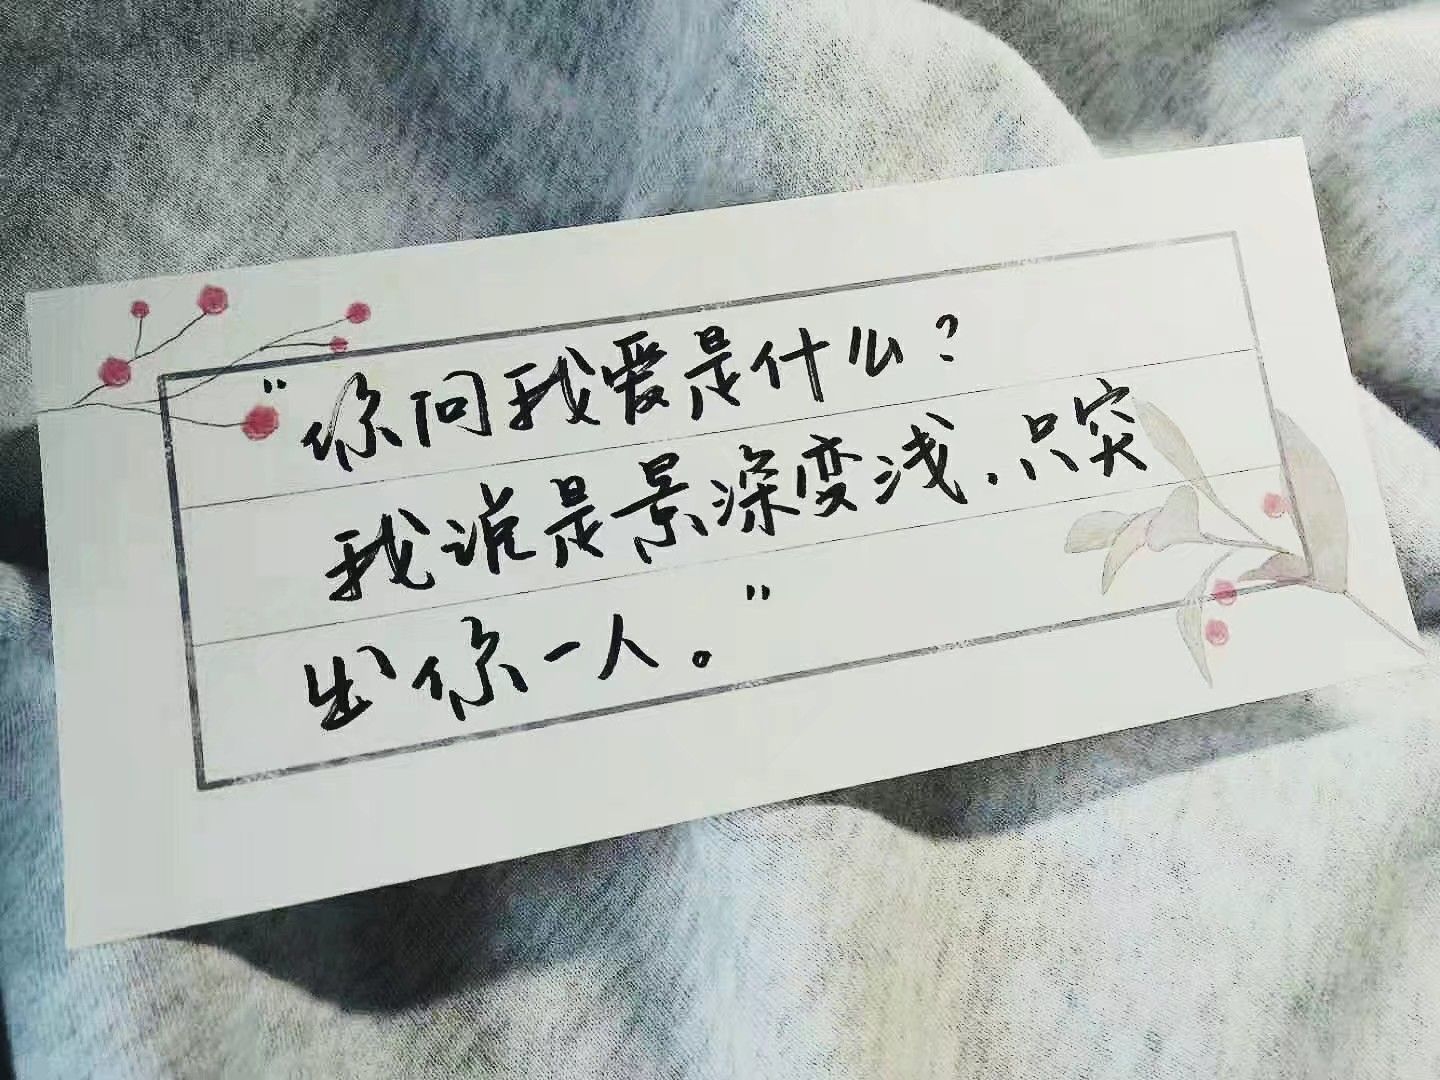 “你问我爱是什么？
我说是景深变浅，只突
出你一人。”